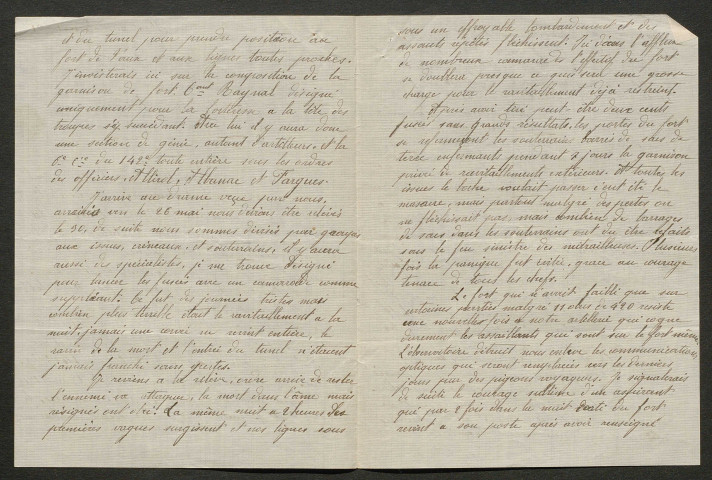 et du tunel pour prendre position au
fort de Vaux et aux lignes toutes proches.
J'insisterais ici sur la composition de la
garnison du fort. Cmt Raynal désigné
uniquement pour la forteresse a la tête des
troupes s'y succédant. Avec lui il y aura donc
une section de génie, autant d'artilleurs, et la
6e Cie du 142e toute entière sous les ordres
des officiers, Alirol, Albanac et Fargues.
J'arrive au drame vécu par nous,
arrivés vers le 26 mai nous devions être relevés
le 30, de suite nous sommes divisés pour garages
aux issues, créneaux, et souterrains, il y aura
aussi des spécialistes, je me trouve désigné
pour lancer les fusées avec un camarade comme
suppléant. Ce fut des journées tristes mais
combien plus terrible était le ravitaillement a la
nuit, jamais une corvée ne revint entière, le
ravin de la mort et l'entrée du tunel n'étaient
jamais franchi sans pertes.
Je reviens a la relève, ordre arrive de rester
l'ennemi va attaquer, la mort dans l'âme mais
résignés ont obéi. La même nuit a 2 heures les
premières vagues surgissent et nos lignes sous
sous un effroyable bombardement et des
assauts répétés fléchissent. Ici dans l'afflux
de nombreux camarades l'effectif du fort
se doublera presque ce qui sera une grosse
charge pour le ravitaillement déjà restreint.
Après avoir tiré peut être deux cents
fusées sans grands résultats, les portes du fort
se refermeront les souterrains barrés de sacs de
terre enfermants pendant 7 jours la garnison
privé de ravitaillements extérieurs. A toutes les
issues le boche voulait passer s'eut été le
massacre, mais partout malgré des pertes on
ne fléchissait pas, mais combien de barrages
de sacs dans les souterrains ont du être refaits
sous le feu sinistre des mitrailleuses. Plusieurs
fois la panique fut évitée, grace au courage
tenace de tous les chefs.
Le fort qui n'avait faibli que sur
certaines parties malgré 11 obus de 420 résiste
une nouvelle fois a notre artillerie qui cogne
durement les assaillants qui sont sur le fort même,
L'observatoire détruit nous enlève les communications
optiques qui seront remplacées vers les derniers
jours par des pigeons voyageurs. Je signalerais
de suite le courage sublime d'un aspirant
qui par 2 fois dans la nuit sorti du fort
revint a son poste après avoir renseigné